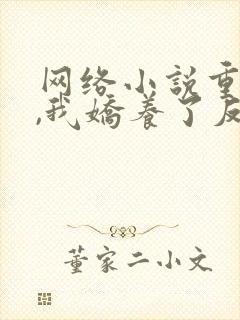 网络小说重
,我娇养了反
董家二小文